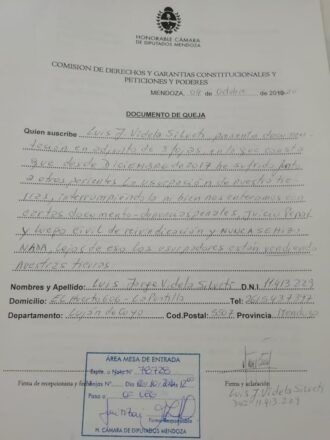 HONORABLE CÁMARA
DE DIPUTADOS MENDOZA
COMISION DE DERECHOS Y GARANTIAS CONSTITUCIONALES Y
PETICIONES Y PODERES
MENDOZA, 09 de Octubre de 20
DOCUMENTO DE QUEJA
Quien suscribe Luis J. Videla Silvets presento documen-
tación en adjunto de 3 fojas, en lo que consta
que desde Diciembre de 2017 he sufrido junto
a otros parientes La usurpación de nuestra tie-
rras, interrumpiendo ni bien nos enteramos con
documento - denuncias penales, Juicio Penal
y luego civil de reivindicación y NUNCA SE HIZO
NADA. Lejos de eso los usurpadores están vendiendo
nuestras tierras
Nombres y Apellido: Luis Jorge Videla Silvets D.N.I. 11.913.209
Domicilio: La Puntilla Tel: 2615437397
Departamento: Luján de Cuyo Cod.Postal: 5507 Provincia Mendoza
ÁREA MESA DE ENTRADA
Expte. o Nota Nº 78728
Fojas Nº
Pase a
Firma Responsable
H. CÁMARA DE DIPUTADOS MENDOZA
Firma de recepcionista y fecha
Firma y aclaración
Luis J. Videla Silvets
DNI 11.913.209